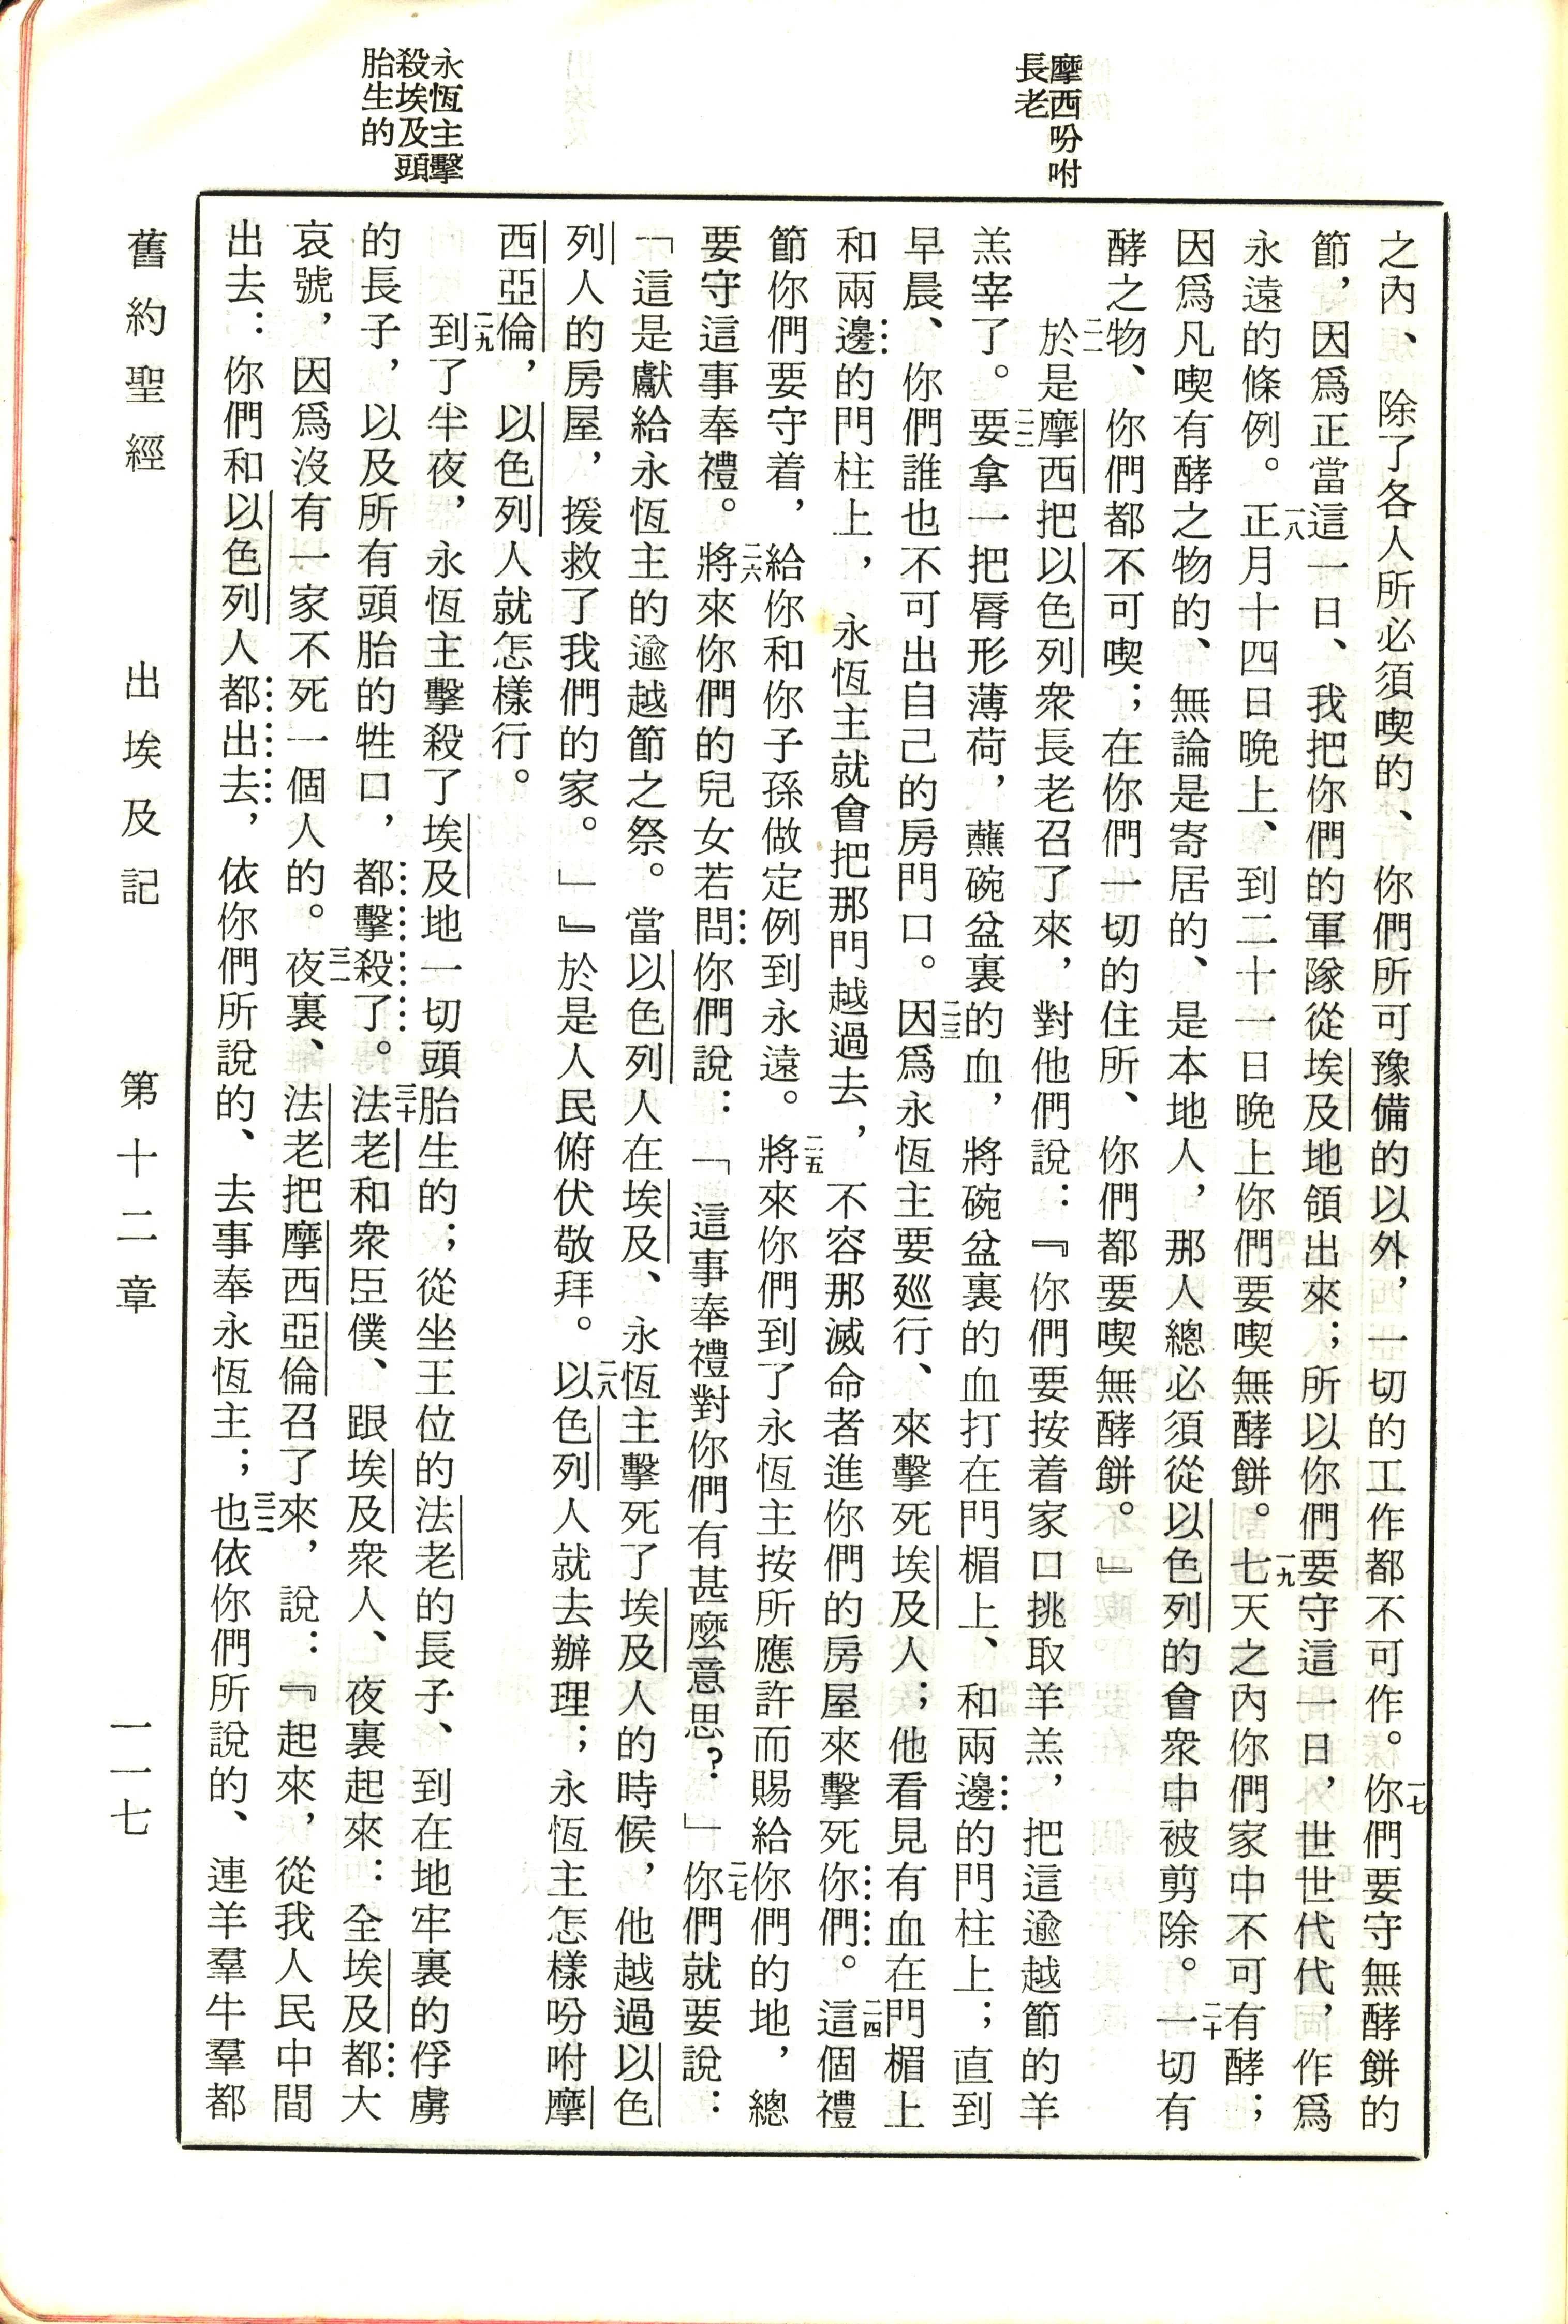 摩西吩咐
長老
永恆主擊
殺埃及頭
胎生的
之內、除了各人所必須喫的、你們所可豫備的以外，一切的工作都不可作。一七你們要守無酵餅的
節，因爲正當這一日、我把你們的軍隊從埃及地領出來；所以你們要守這一日，世世代代，作爲
永遠的條例。一八正月十四日晚上、到二十一日晚上你們要喫無酵餅。一九七天之內你們家中不可有酵；
因爲凡喫有酵之物的、無論是寄居的、是本地人，那人總必須從以色列的會衆中被剪除。二十一切有
酵之物、你們都不可喫；在你們一切的住所、你們都要喫無酵餅。』
二一於是摩西把以色列衆長老召了來，對他們說：『你們要按着家口挑取羊羔，把這逾越節的羊
羔宰了。二二要拿一把脣形薄荷，蘸碗盆裏的血，將碗盆裏的血打在門楣上、和兩邊的門柱上；直到
早晨、你們誰也不可出自己的房門口。二三因爲永恆主要廵行、來擊死埃及人；他看見有血在門楣上
和兩邊的門柱上，永恆主就會把那門越過去，不容那滅命者進你們的房屋來擊死你們。二四這個禮
節你們要守着，給你和你子孫做定例到永遠。二五將來你們到了永恆主按所應許而賜給你們的地，總
要守這事奉禮。二六將來你們的兒女若問你們說：「這事奉禮對你們有甚麼意思？」二七你們就要說：
「這是獻給永恆主的逾越節之祭。當以色列人在埃及、永恆主擊死了埃及人的時候，他越過以色
列人的房屋，援救了我們的家。」』於是人民俯伏敬拜。二八以色列人就去辦理；永恆主怎樣吩咐摩
西亞倫，以色列人就怎樣行。
二九到了半夜，永恆主擊殺了埃及地一切頭胎生的；從坐王位的法老的長子、到在地牢裏的俘虜
的長子，以及所有頭胎的牲口，都擊殺了。三十法老和衆臣僕、跟埃及衆人、夜裏起來：全埃及都大
哀號，因爲沒有一家不死一個人的。三一夜裏、法老把摩西亞倫召了來，說：『起來，從我人民中間
出去：你們和以色列人都出去，依你們所說的、去事奉永恆主；三二也依你們所說的、連羊羣牛羣都
舊約聖經　出埃及記　第十二章　一一七